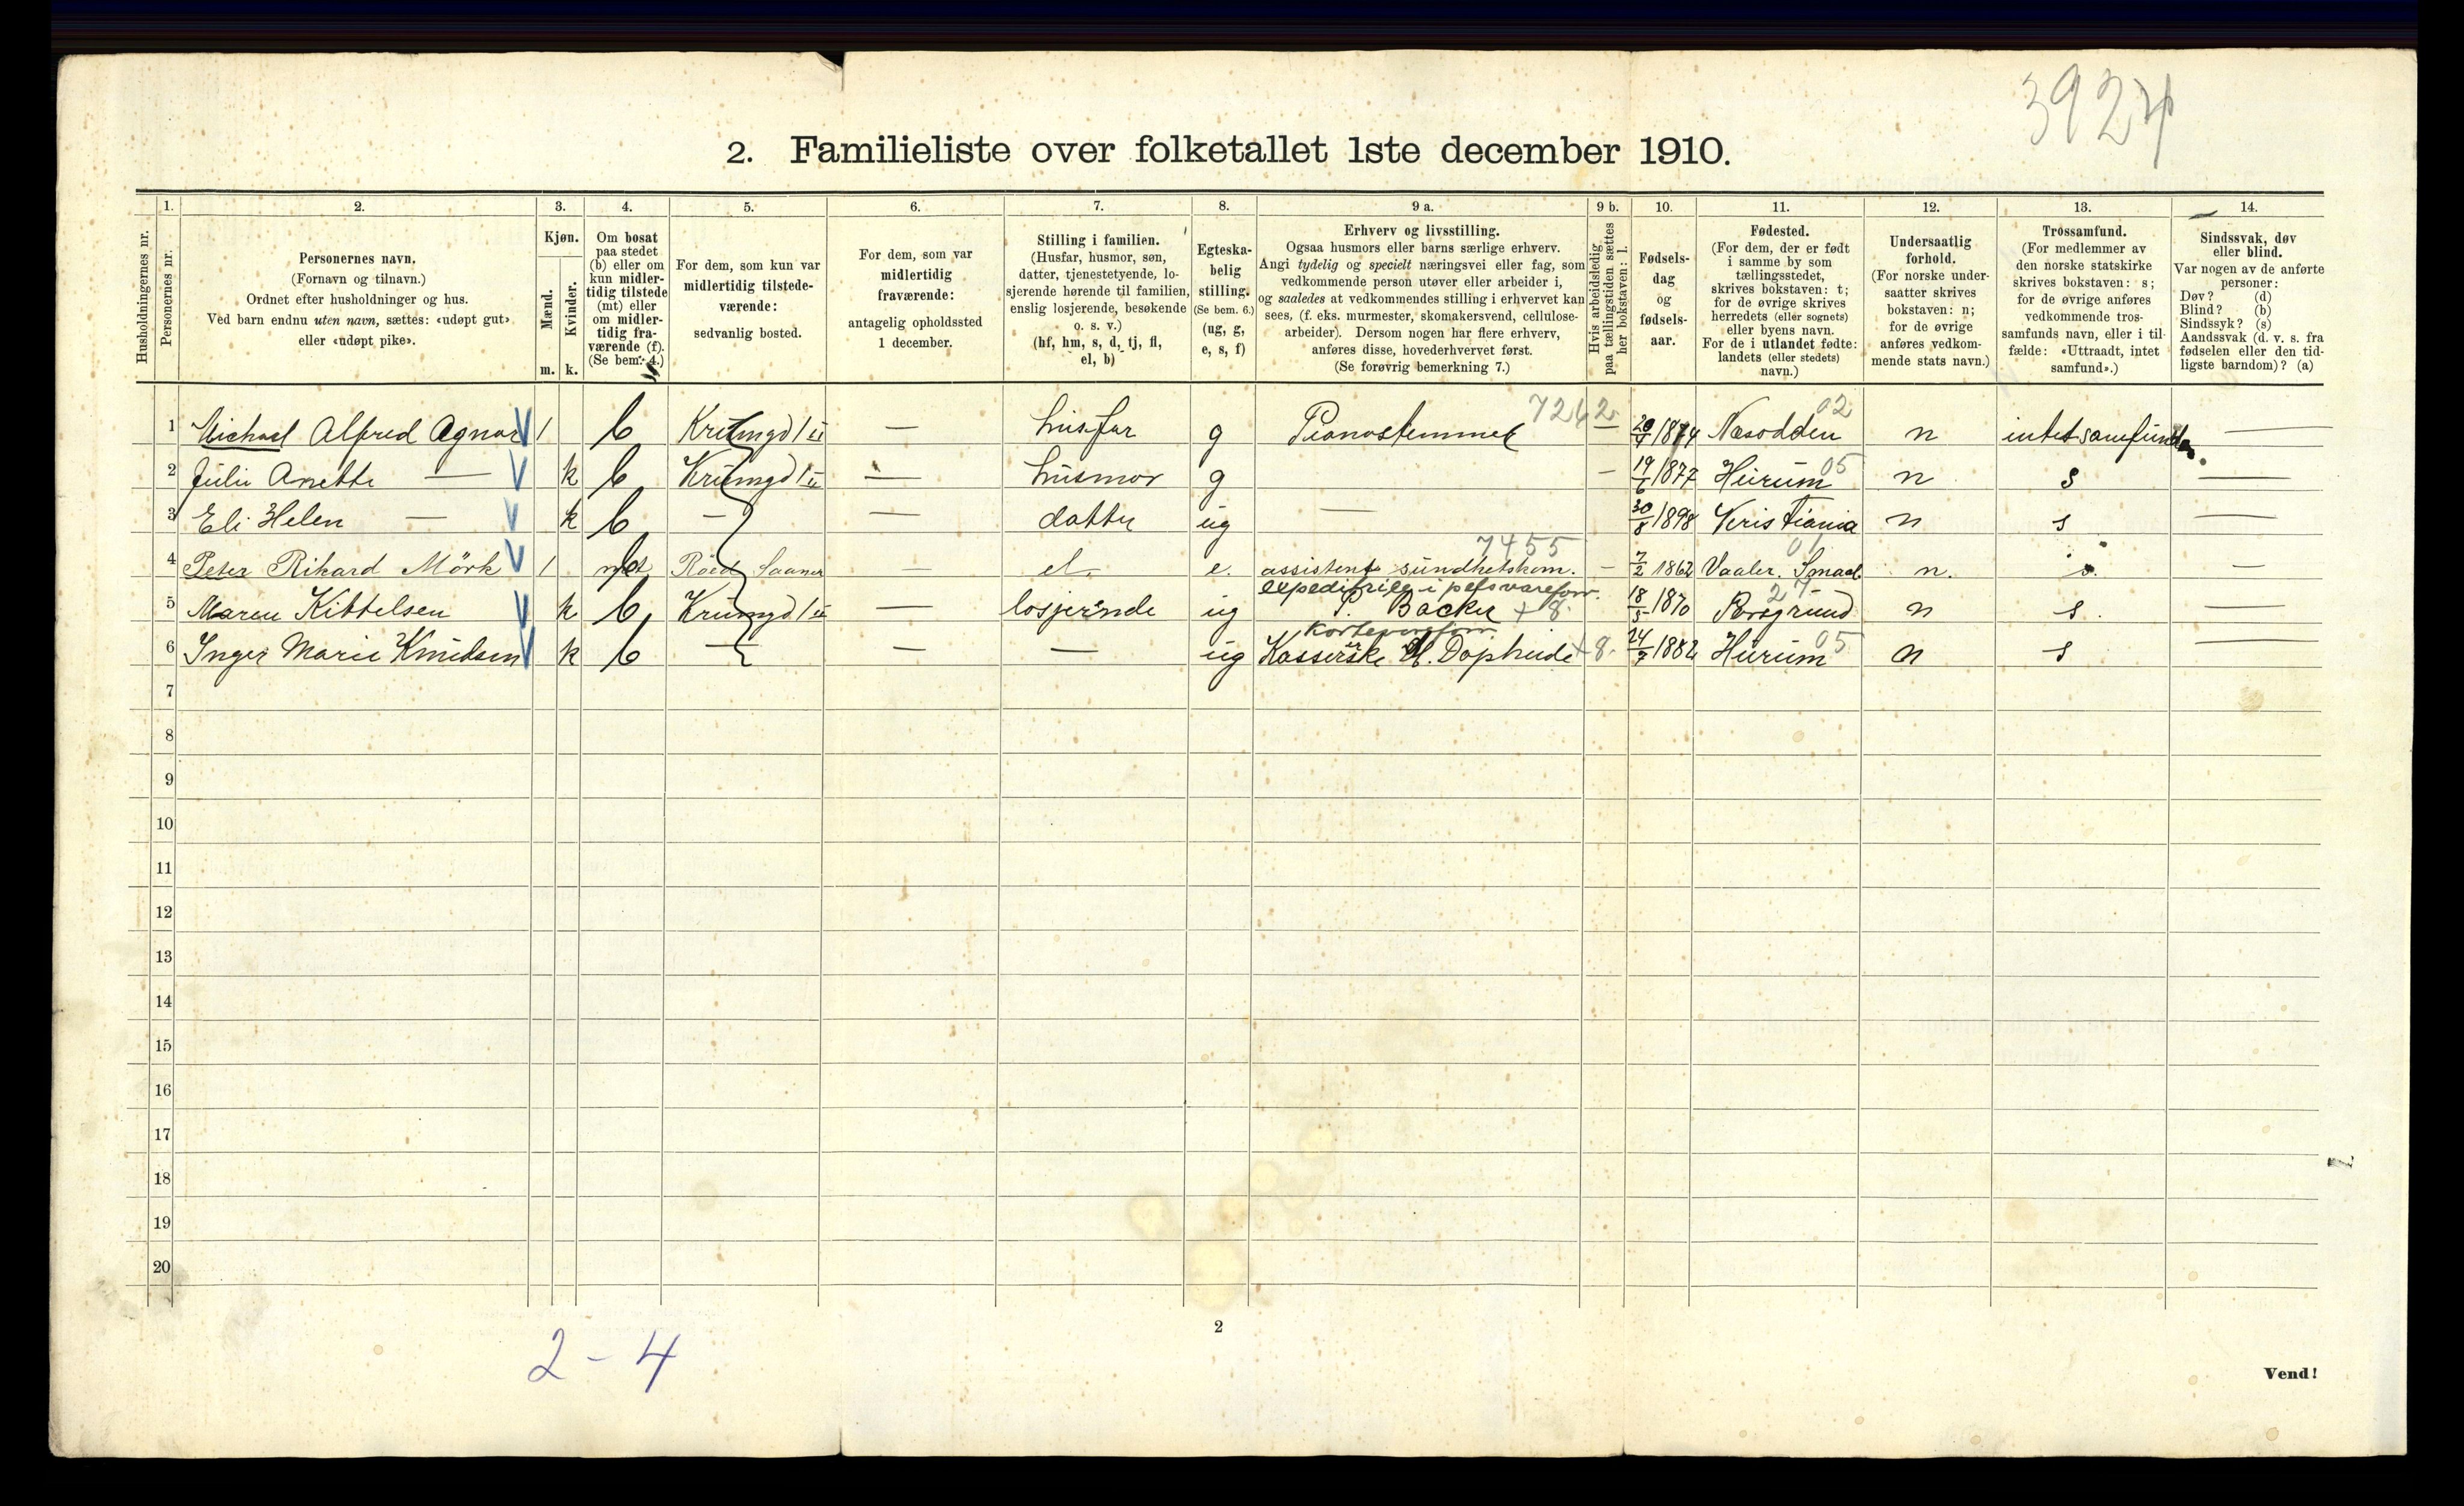 3924
2. Familieliste over folketallet 1ste december 1910.
Husholdningernes nr.
1.
Personernes nr.
2.
Personernes navn.
(Fornavn og tilnavn.)
Ordnet efter husholdninger og hus.
Ved barn endnu uten navn, sættes: «udøpt gut»
eller «udøpt pike».
3.
Kjøn.
Mænd.
Kvinder.
m. k.
4.
Om bosat
paa stedet
(b) eller om
kun midler-
tidig tilstede
(mt) eller
om midler-
tidig fra-
værende (f).
(Se bem. 4.)
5.
For dem, som kun var
midlertidig tilstede-
værende:
sedvanlig bosted.
6.
For dem, som var
midlertidig
fraværende:
antagelig opholdssted
1 december.
7.
Stilling i familien.
(Husfar, husmor, søn,
datter, tjenestetyende, lo-
sjerende hørende til familien,
enslig losjerende, besøkende
o. s. v.)
(hf, hm, s, d, tj, fl,
el, b)
8.
Egteska-
belig
stilling.
(Se bem. 6.)
(ug, g,
e, s, f)
9 a.
Erhverv og livsstilling.
Ogsaa husmors eller barns særlige erhverv.
Angi tydelig og specielt næringsvei eller fag, som
vedkommende person utøver eller arbeider i,
og saaledes at vedkommendes stilling i erhvervet kan
sees, (f. eks. murmester, skomakersvend, cellulose-
arbeider). Dersom nogen har flere erhverv,
anføres disse, hovederhvervet først.
(Se forøvrig bemerkning 7.)
9 b.
Hvis arbeidsledig
paa tællingstiden sættes
her bokstaven: l.
10.
Fødsels-
dag
og
fødsels-
aar.
11.
Fødested.
(For dem, der er født
i samme by som
tællingsstedet,
skrives bokstaven: t;
for de øvrige skrives
herredets (eller sognets)
eller byens navn.
For de i utlandet fødte:
landets (eller stedets)
navn.)
12.
Undersaatlig
forhold.
(For norske under-
saatter skrives
bokstaven: n;
for de øvrige
anføres vedkom-
mende stats navn.)
13.
Trossamfund.
(For medlemmer av
den norske statskirke
skrives bokstaven: s;
for de øvrige anføres
vedkommende tros-
samfunds navn, eller i til-
fælde: «Uttraadt, intet
samfund».)
14.
Sindssvak, døv
eller blind.
Var nogen av de anførte
personer:
Døv? (d)
Blind? (b)
Sindssyk? (s)
Aandssvak (d. v. s. fra
fødselen eller den tid-
ligste barndom)? (a)
7262 02
1 Michael Alfred Agnar 1 b — husfar g Pianostemmer — 1874 Næsodden n intet samfund —
05
2 Julie Anette — k b — husmor g — 19/6 1877 Hurum n s —
3 Eli Helen — k b — — datter ug — 30/8 1898 Kristiania n s —
7455 01
4 Peter Rikard Mörk 1 mt Röed Saaner — el. e. assistent sundhetskom. — 7/2 1862 Vaaler. Smaal n. s. —
27
5 Maren Kittelsen k b — losjerende ug P. Backer + 8. 18/5 1870 Porsgrund n s. —
05
6 Inger Marie Knudsen k b — — — ug Kasserske + 8. 24/7 1882 Hurum n s —
7
8
9
10
11
12
13
14
15
16
17
18
19
20
2 - 4
2
Vend!